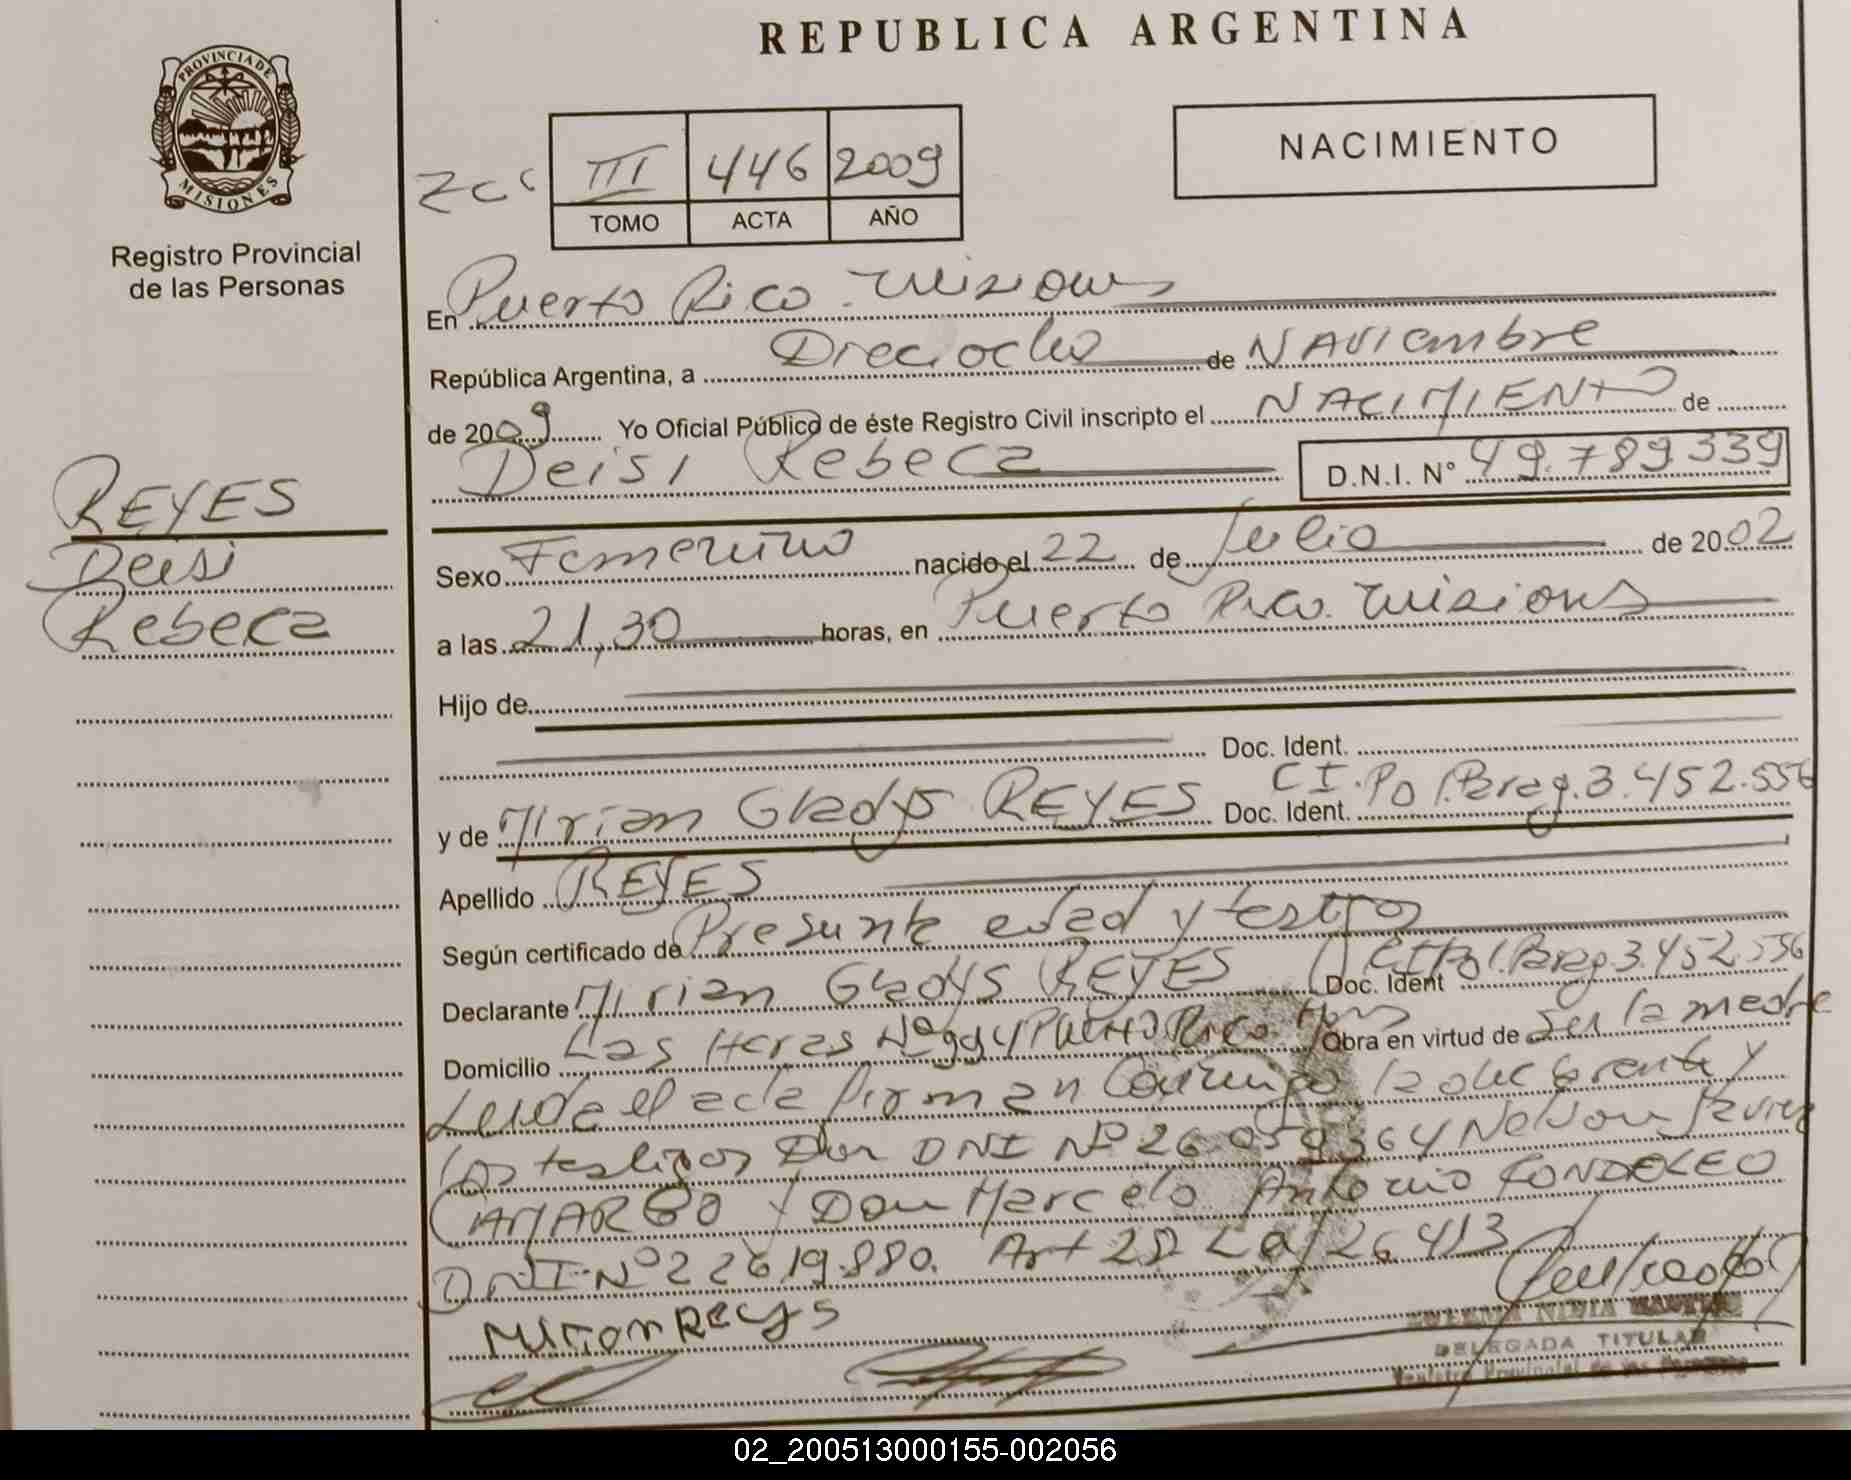 REPUBLICA ARGENTINA
PROVINCIA DE
MISIONES
Registro Provincial
de las Personas
III 446 2009
TOMO ACTA AÑO
NACIMIENTO
En Puerto Rico. Misiones
República Argentina, a Dieciocho de Noviembre
de 2009 Yo Oficial Público de éste Registro Civil inscripto el NACIMIENTO de
Deisi Rebeca D.N.I. Nº 49.789339
REYES
Deisi
Rebeca
Sexo Femenino nacido el 22 de Julio de 2002
a las 21,30 horas, en Puerto Rico. Misiones
Hijo de
Doc. Ident.
y de Mirian Gladys REYES Doc. Ident. C I. Pol. Parag. 3.452.556
Apellido REYES
Según certificado de Presunta edad y testigos
Declarante Mirian Gladys REYES Doc. Ident CI Pol. Parag. 3.452.556
Domicilio Las Heras Nº 994 Puerto Rico. Mnes Obra en virtud de ser la madre
Leida el acta firman Conmigo la declarante y
los testigos Don DNI Nº 26.059.364 Nelson Javier
CAMARGO y Don Marcelo Antonio
DNI Nº 22619.880. Art 28 Ley 26.413
Mirian Reyes
DELEGADA TITULAR
Registro Provincial de las Personas
02_200513000155-002056